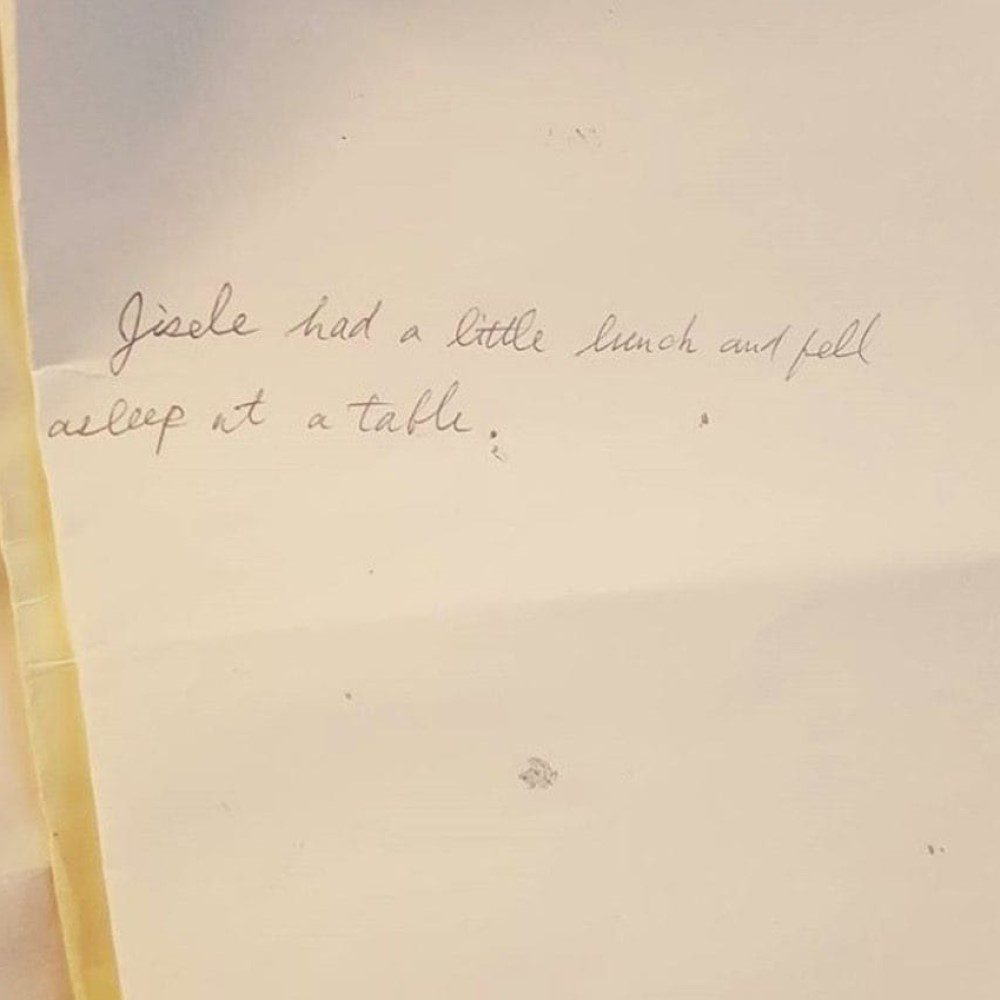 Gisele had a little lunch and fell
asleep at a table.